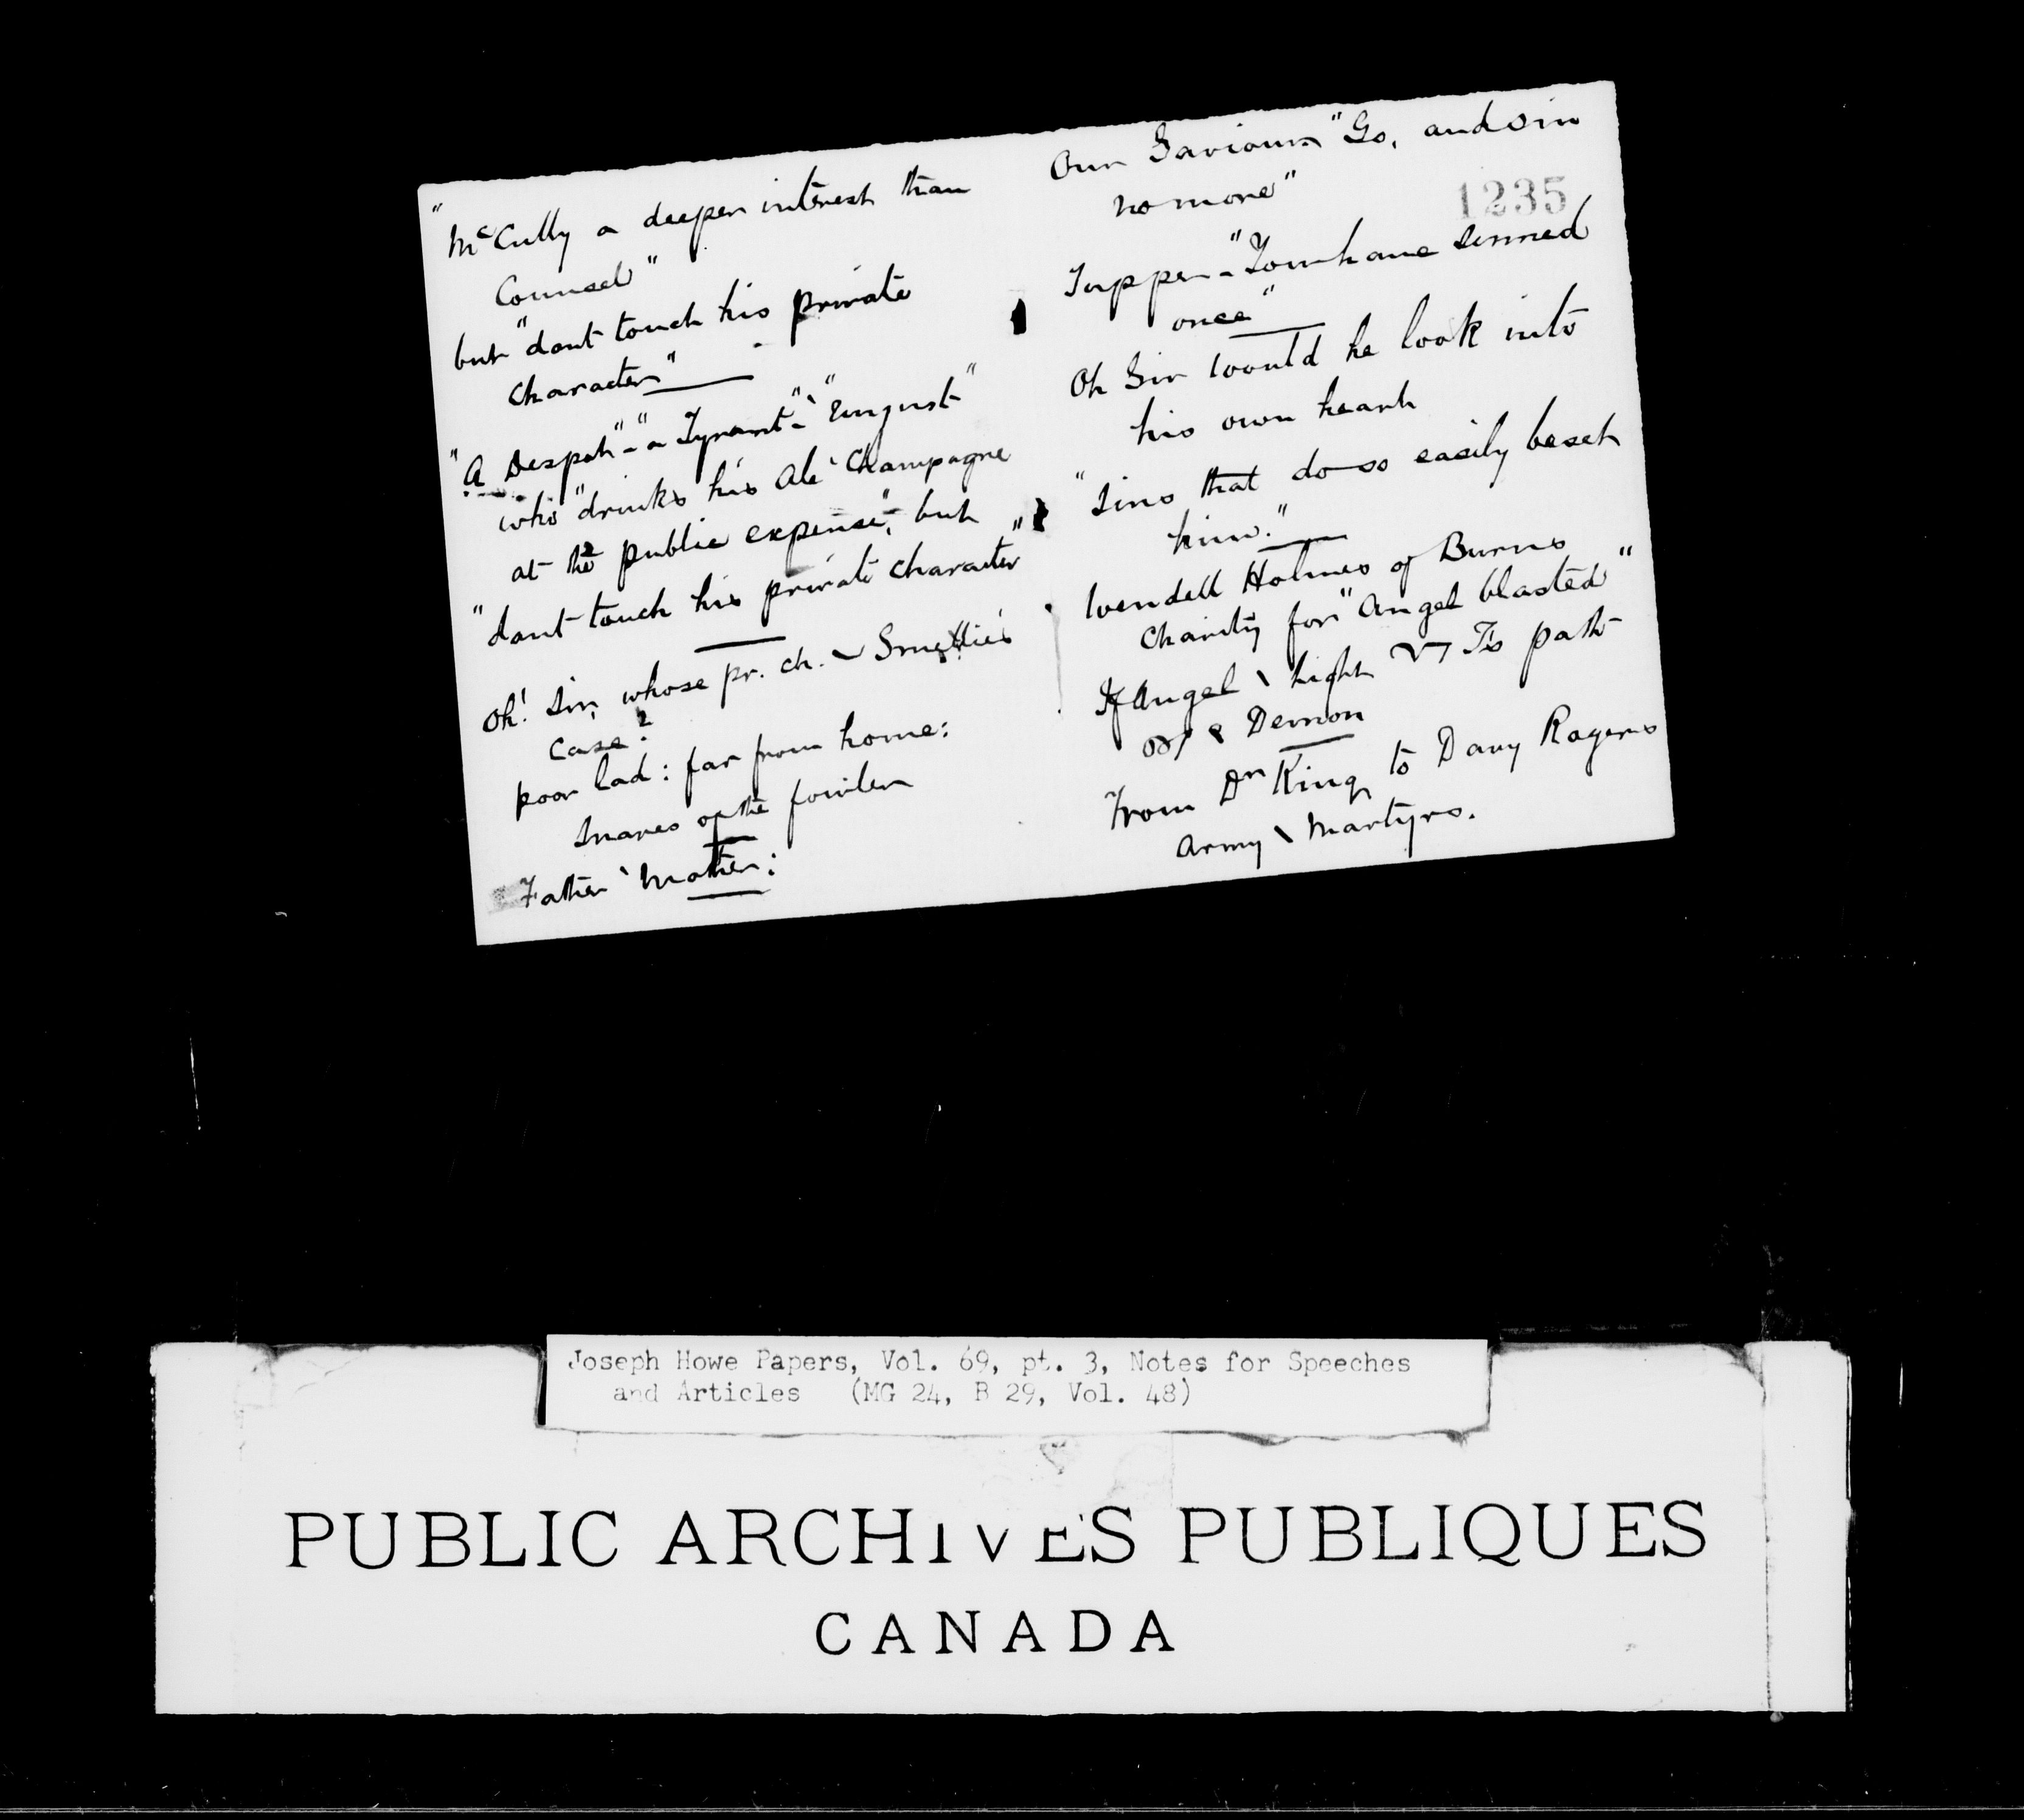 "McCully a deeper interest than
Counsel"
but "dont touch his private
Character"
"A Despot" - "a Tyrant" - "Unjust"
who "drinks his Ale Champagne
at the public expense", but
"dont touch his private character"
Oh! Sir, whose pr. ch. Smellie's
Case?
poor lad: far from home:
Snares of the fowler
Father ` Mother:
Our Saviour "Go, and sin
no more"
1235
Tupper - "You have sinned
once"
Oh Sir would he look into
his own heart
"Sins that do so easily beset
him."
Wendell Holmes of Burns
Charity for "Angel blasted"
If Angel \ light T's path
Demon
From Dr King to Davy Rogers
Army \ Martyrs.
Joseph Howe Papers, Vol. 69, pt. 3, Notes for Speeches
and Articles (MG 24, B 29, Vol. 48)
PUBLIC ARCHIVES PUBLIQUES
CANADA